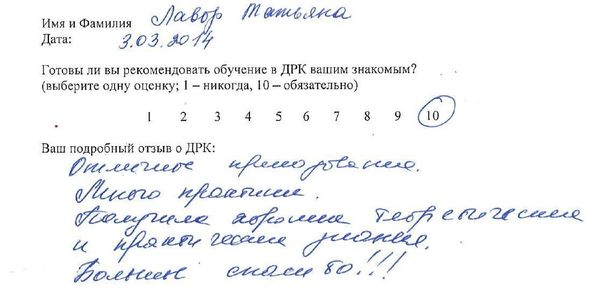 Имя и Фамилия Лавор Татьяна
Дата: 3.03.2014
Готовы ли вы рекомендовать обучение в ДРК вашим знакомым?
(выберите одну оценку; 1 – никогда, 10 – обязательно)
1 2 3 4 5 6 7 8 9 10
Ваш подробный отзыв о ДРК:
Отличное преподование.
Много практики.
Получила хорошие теоретические
и практические знания.
Большое спасибо!!!